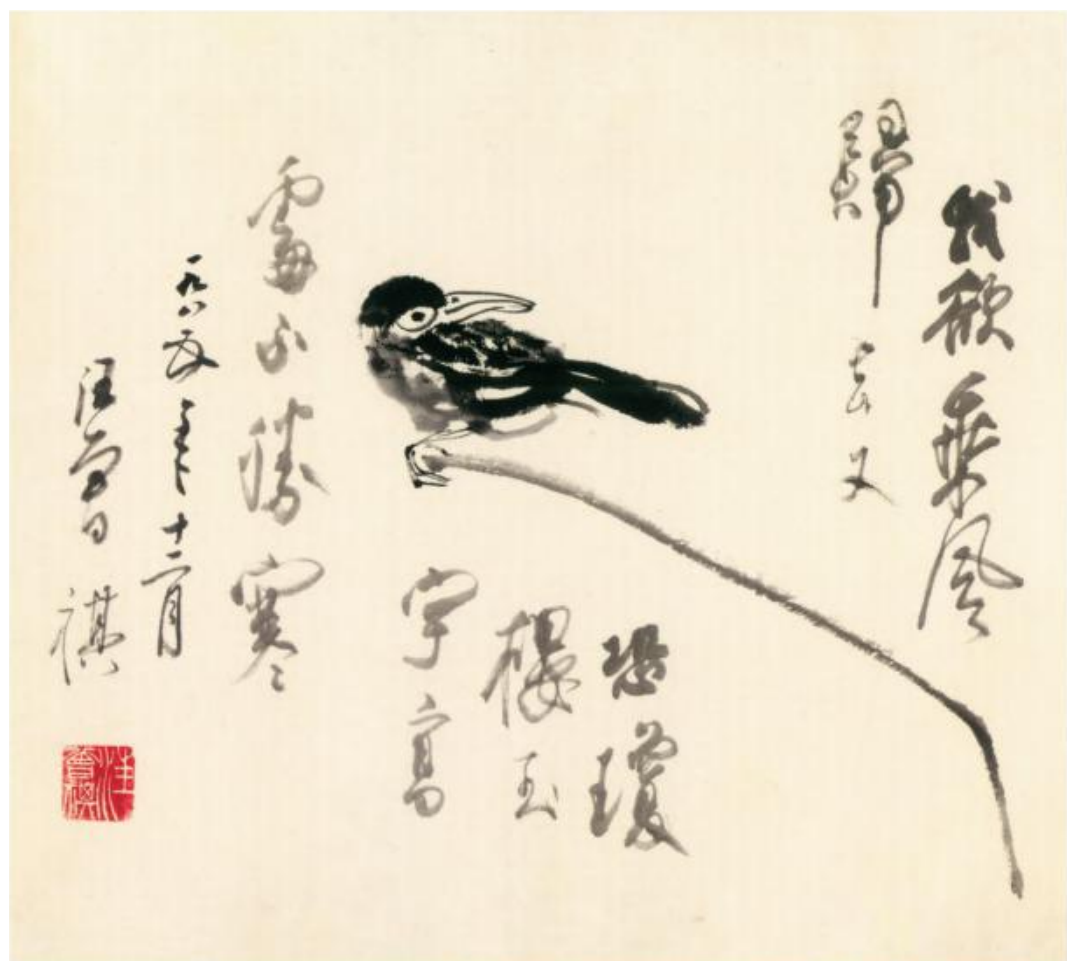 我欲乘风
歸去又
恐瓊
樓玉
宇高
處不勝寒
一九八五年十二月
汪曾祺
汪曾祺